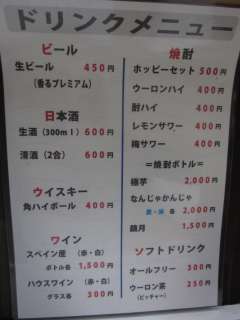 ドリンクメニュー
ビール
生ビール 450円
(香るプレミアム)
日本酒
生酒(300ml) 600円
清酒(2合) 600円
ウイスキー
角ハイボール 400円
ワイン
スペイン産 (赤・白)
ボトル各 1,500円
ハウスワイン (赤・白)
グラス各 300円
焼酎
ホッピーセット 500円
ウーロンハイ 400円
酎ハイ 400円
レモンサワー 400円
梅サワー 400円
=焼酎ボトル=
極芋 2,000円
なんじゃかんじゃ
麦・米 各 2,000円
鏡月 1,500円
ソフトドリンク
オールフリー 300円
ウーロン茶 250円
(ピッチャー)